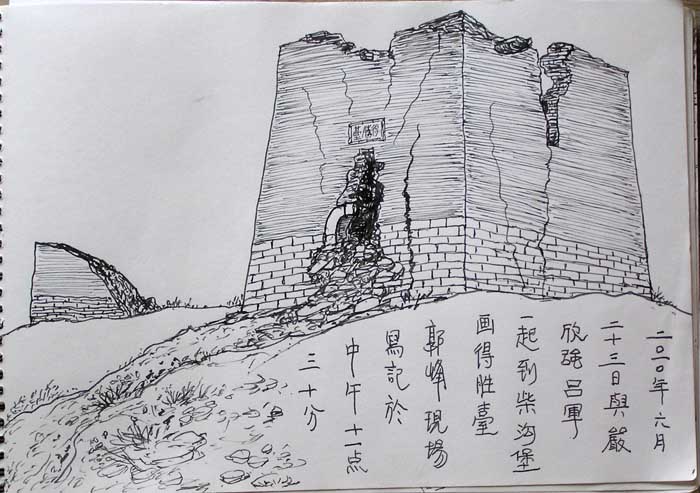 二〇一〇年六月
二十三日與嚴
欣强吕軍
一起到柴沟堡
画得胜臺
郭峰現場
寫記於
中午十一点
三十分